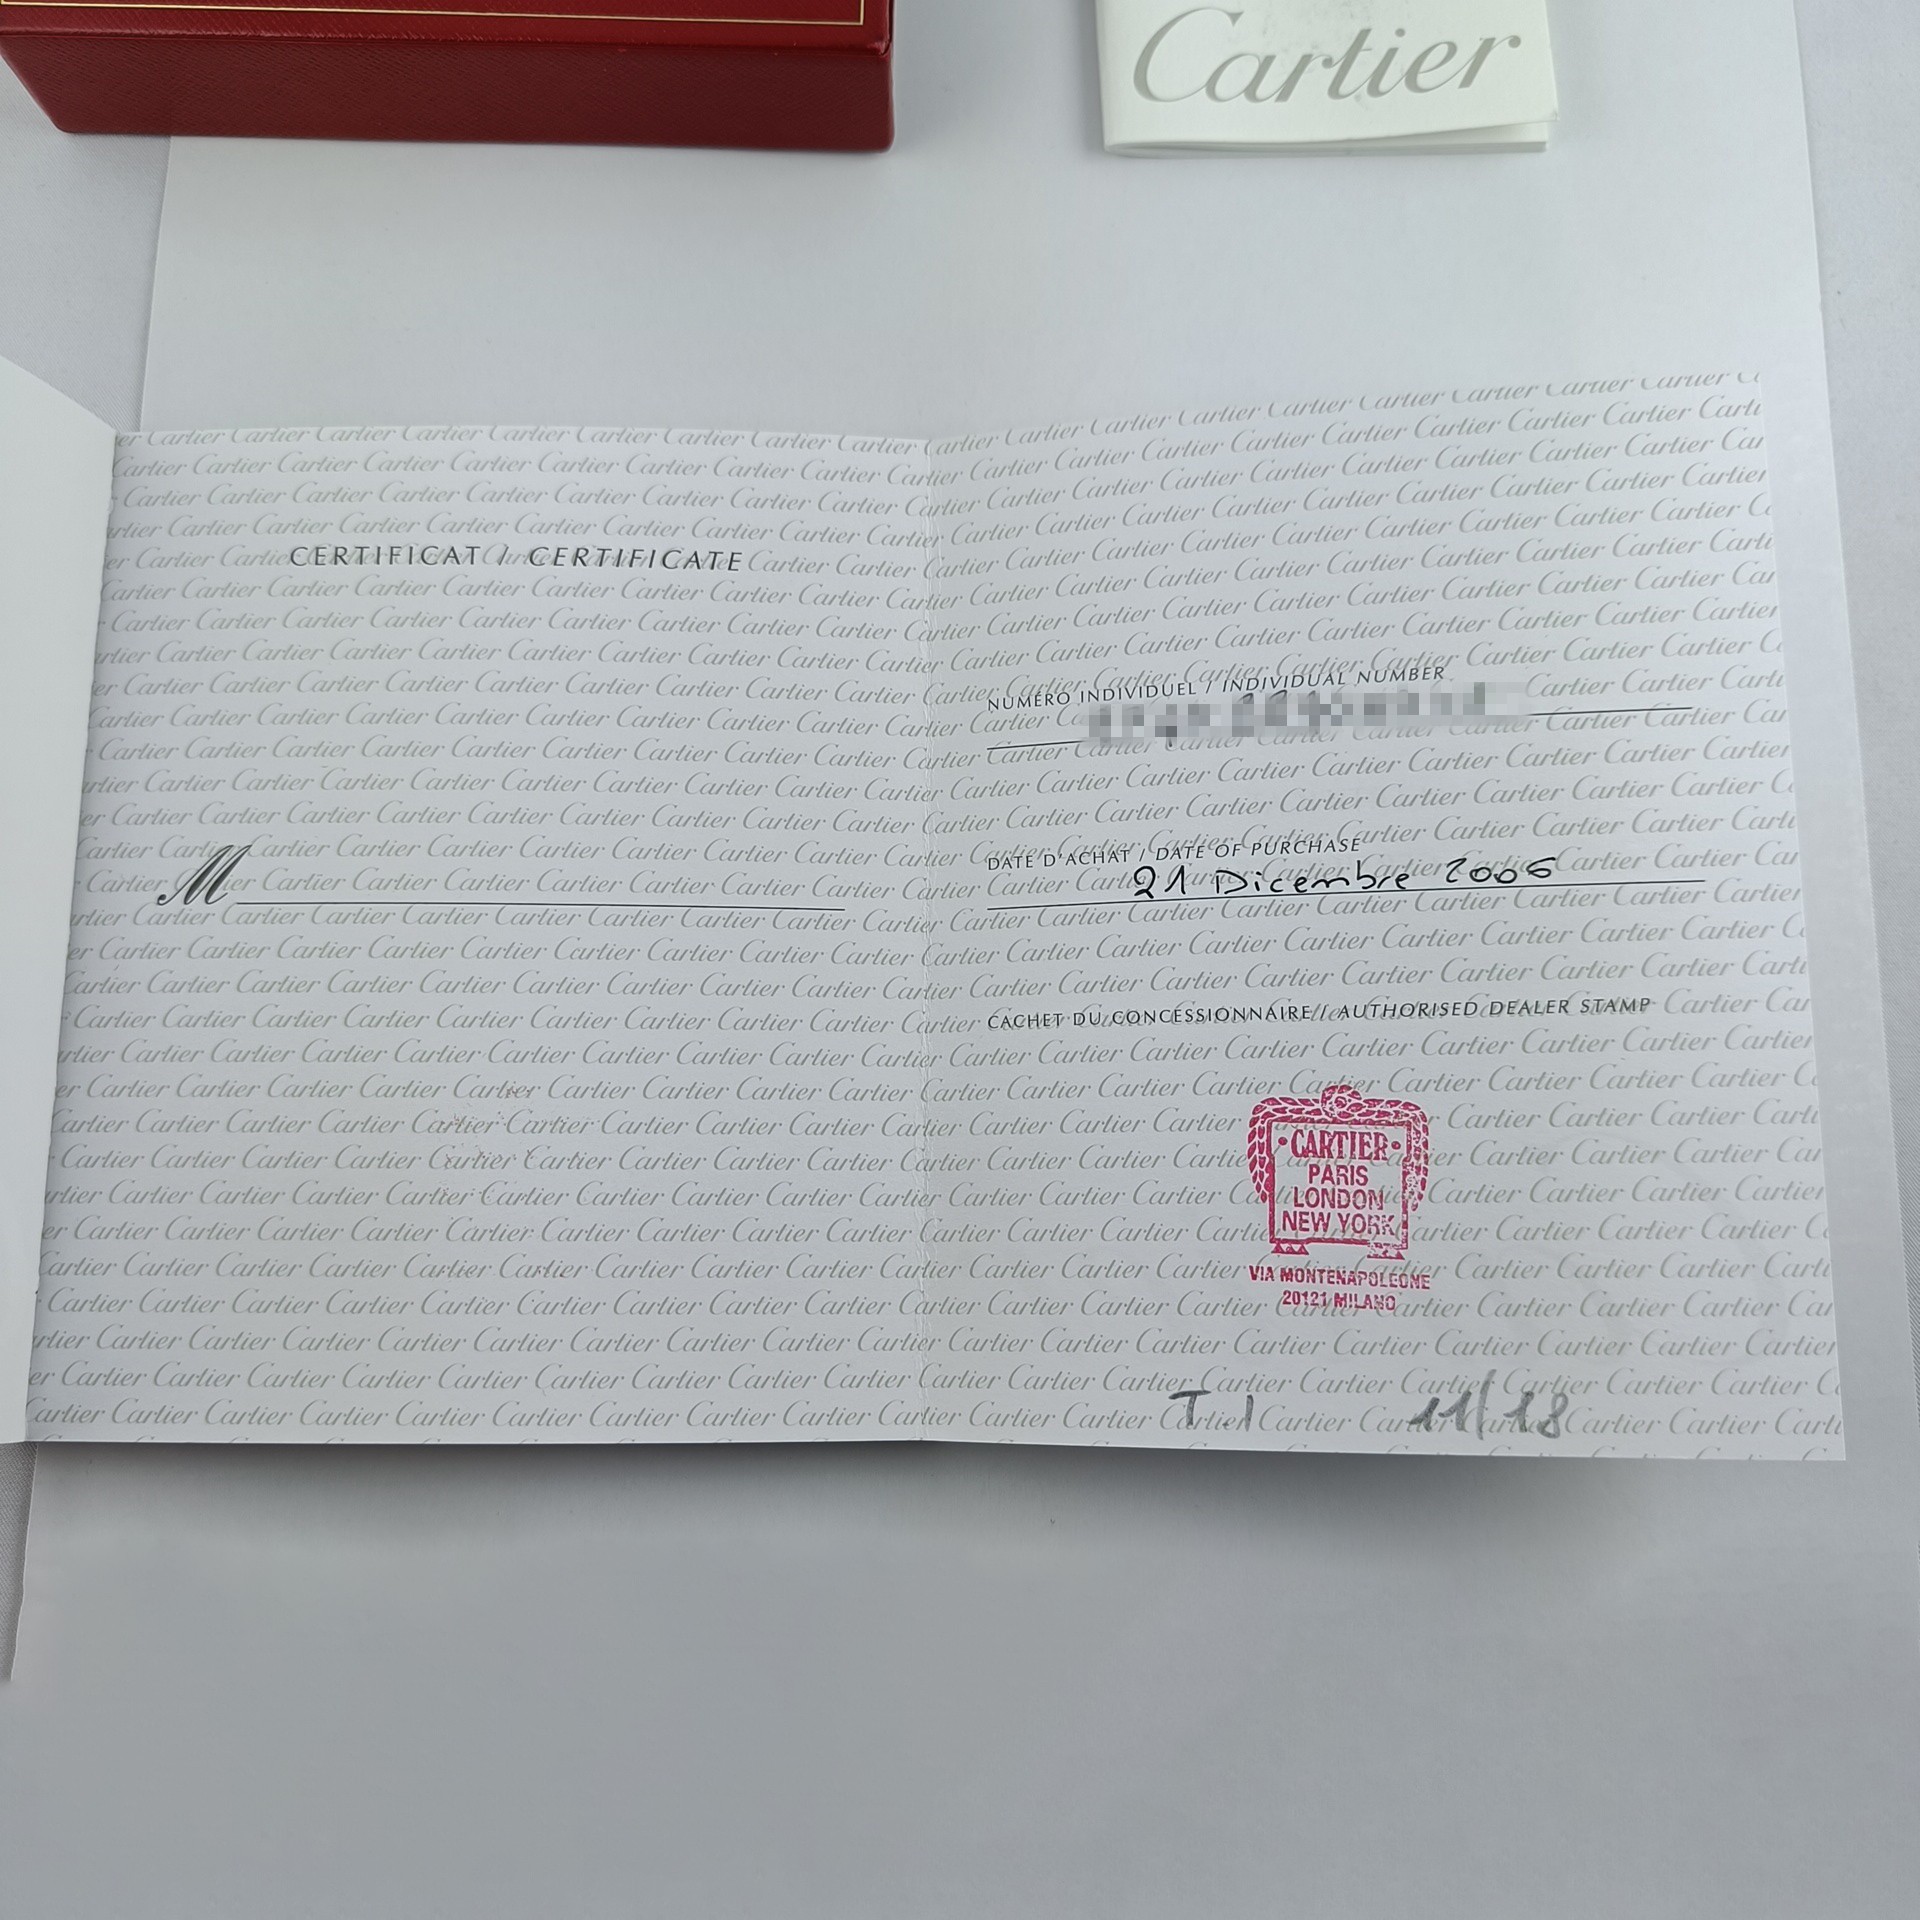 Cartier
CERTIFICAT / CERTIFICATE
M
NUMÉRO INDIVIDUEL / INDIVIDUAL NUMBER
DATE D'ACHAT / DATE OF PURCHASE
21 Dicembre 2006
CACHET DU CONCESSIONNAIRE / AUTHORISED DEALER STAMP
• CARTIER •
PARIS
LONDON
NEW YORK
VIA MONTENAPOLEONE
20121 MILANO
T.I 11/18